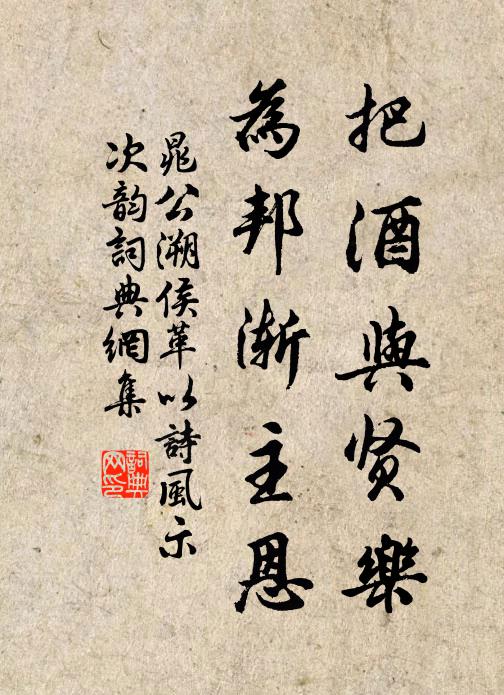 把酒與贤樂
為邦渐主恩
晁公溯侯革以詩風示
次韵詞典網集
詞典
网印